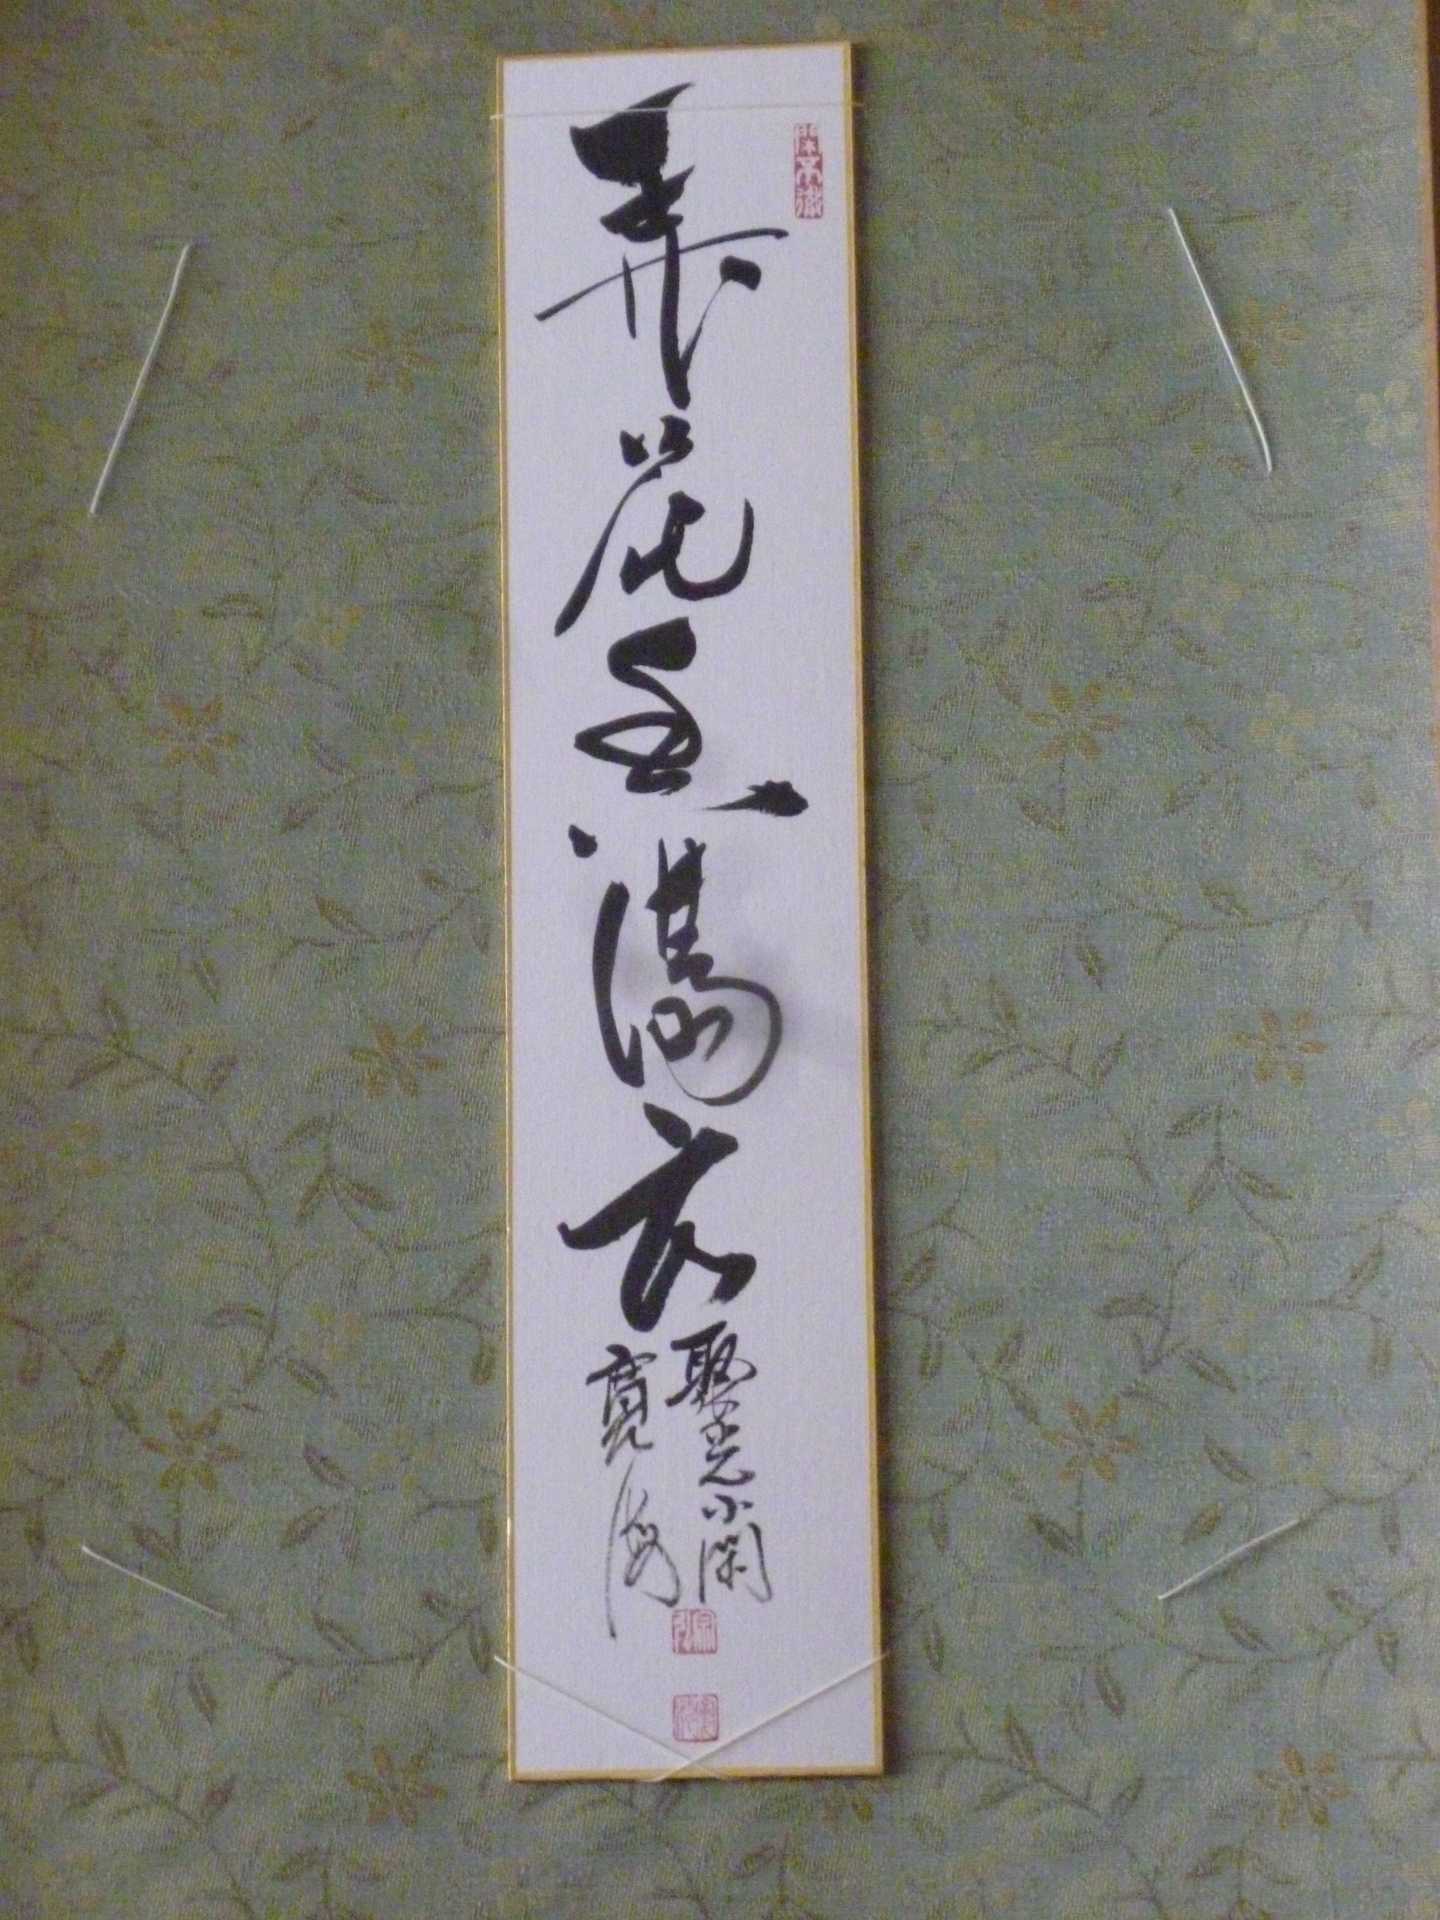 弄花香満衣
聚光小閑
寛海